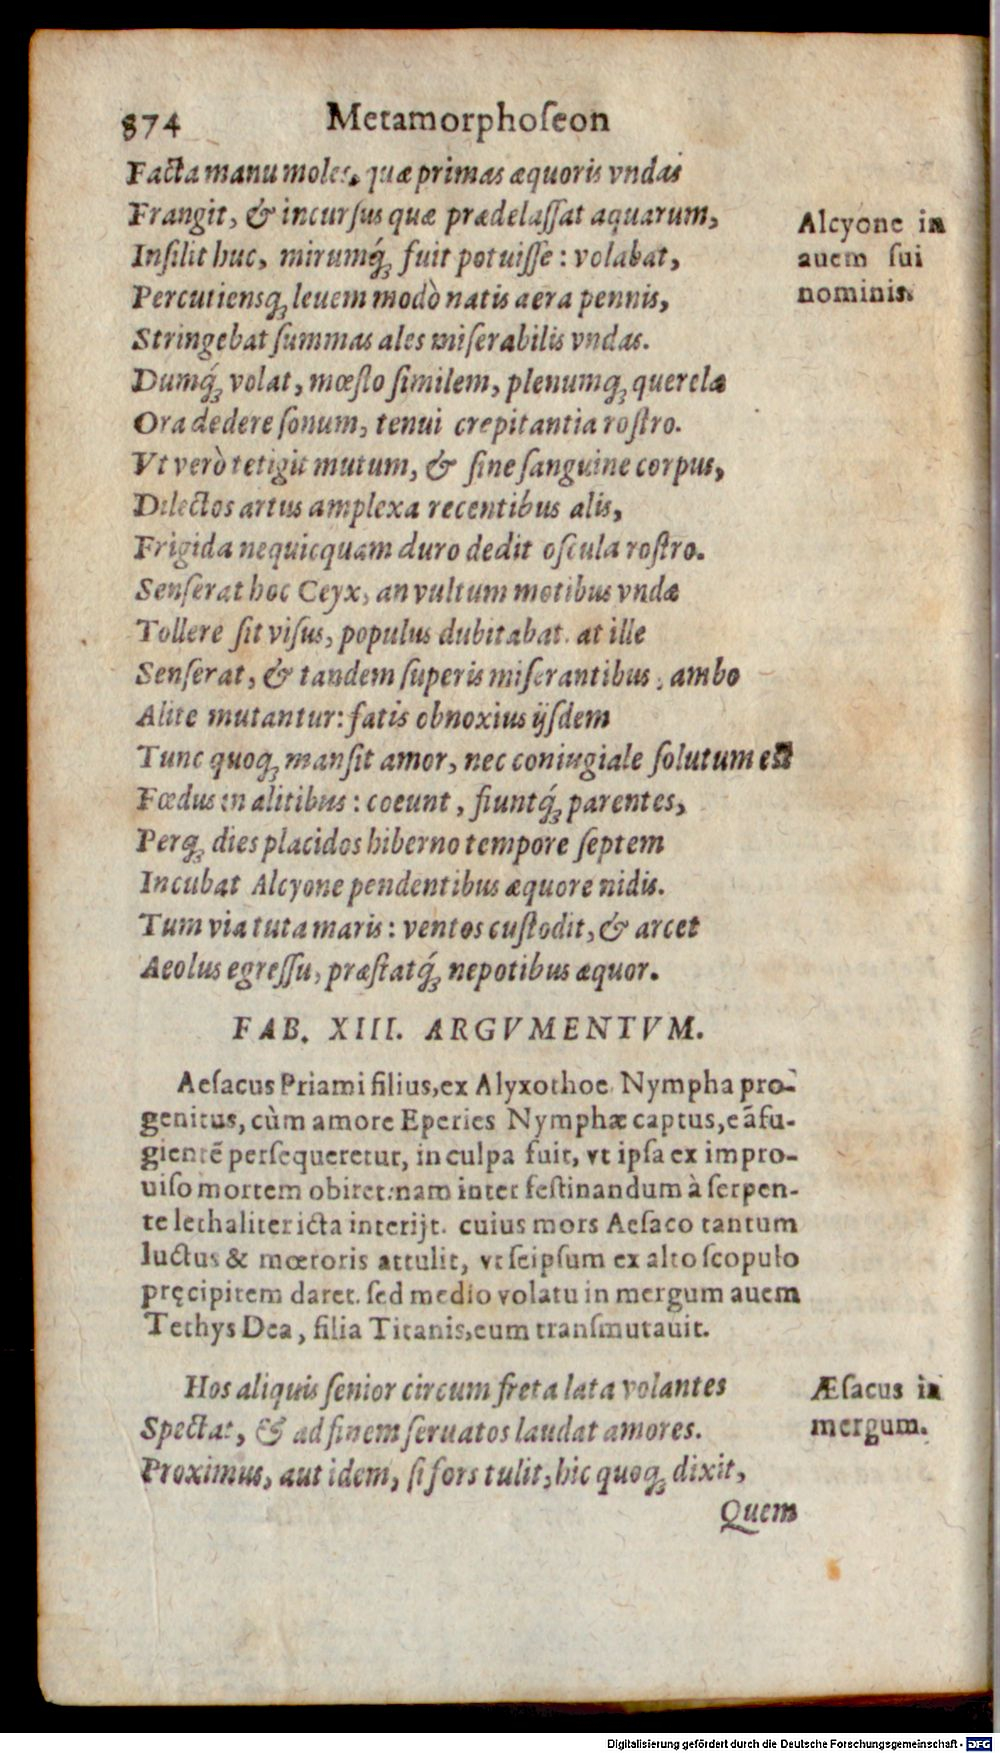 874 Metamorphoſeon
Facta manu moles, quæ primas æquoris vndas
Frangit, & incurſus quæ prædelaſſat aquarum,
Inſilit huc, mirumq́; fuit potuiſſe: volabat,
Percutiensq; leuem modò natis aera pennis,
Stringebat ſummas ales miſerabilis vndas.
Dumq́; volat, mœſto ſimilem, plenumq; querelæ
Ora dedere ſonum, tenui crepitantia roſtro.
Vt verò tetigit mutum, & ſine ſanguine corpus,
Dilectos artus amplexa recentibus alis,
Frigida nequicquam duro dedit oſcula roſtro.
Senſerat hoc Ceyx, an vultum motibus vndæ
Tollere ſit viſus, populus dubitabat. at ille
Senſerat, & tandem ſuperis miſerantibus, ambo
Alite mutantur: fatis obnoxius ijſdem
Tunc quoq; manſit amor, nec coniugiale ſolutum est
Fœdus in alitibus: coeunt, fiuntq́; parentes,
Perq; dies placidos hiberno tempore ſeptem
Incubat Alcyone pendentibus æquore nidis.
Tum via tuta maris: ventos cuſtodit, & arcet
Aeolus egreſſu, præſtatq́; nepotibus æquor.
Alcyone in
auem ſui
nominis.
FAB. XIII. ARGVMENTVM.
Aeſacus Priami filius, ex Alyxothoe Nympha pro-
genitus, cùm amore Eperies Nymphæ captus, eã fu-
gientẽ perſequeretur, in culpa fuit, vt ipſa ex impro-
uiſo mortem obiret: nam inter feſtinandum à ſerpen-
te lethaliter icta interijt. cuius mors Aeſaco tantum
luctus & mœroris attulit, vt ſeipſum ex alto ſcopulo
pręcipitem daret. ſed medio volatu in mergum auem
Tethys Dea, filia Titanis, eum tranſmutauit.
Hos aliquis ſenior circum freta lata volantes
Spectat, & ad finem ſeruatos laudat amores.
Proximus, aut idem, ſi fors tulit, hic quoq; dixit,
Æſacus in
mergum.
Quem
Digitalisierung gefördert durch die Deutsche Forschungsgemeinschaft - DFG